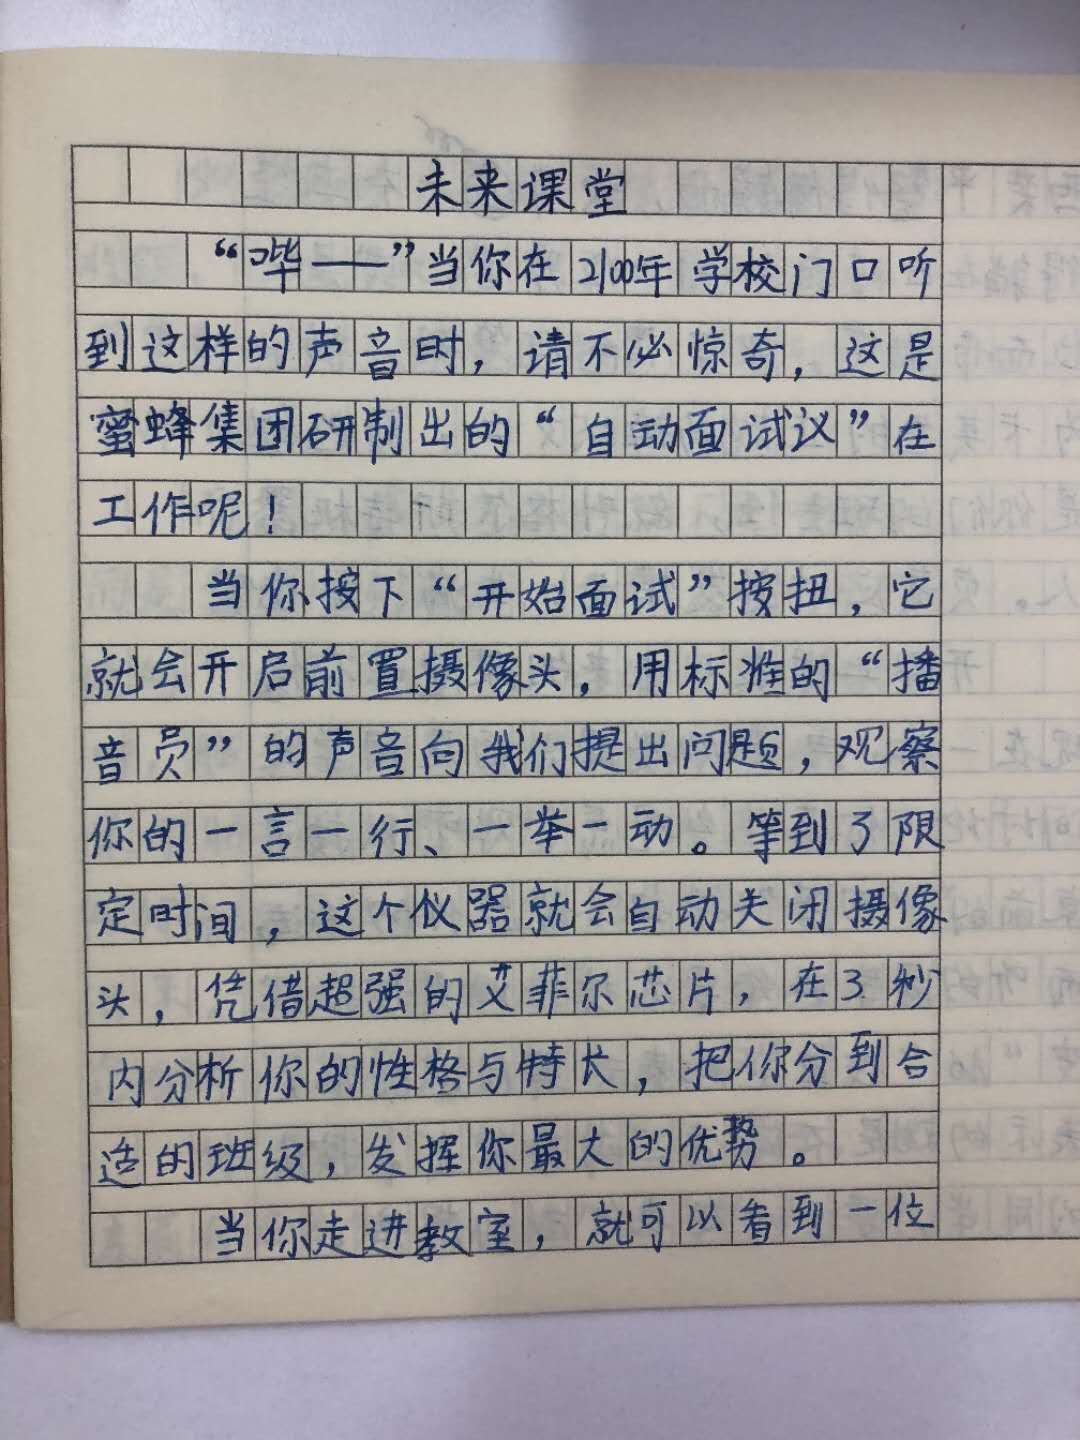 未来课堂
“哔——”当你在2100年学校门口听
到这样的声音时，请不必惊奇，这是
蜜蜂集团研制出的“自动面试议”在
工作呢！
当你按下“开始面试”按扭，它
就会开启前置摄像头，用标准的“播
音员”的声音向我们提出问题，观察
你的一言一行、一举一动。等到了限
定时间，这个仪器就会自动关闭摄像
头，凭借超强的艾菲尔芯片，在3秒
内分析你的性格与特长，把你分到合
适的班级，发挥你最大的优势。
当你走进教室，就可以看到一位